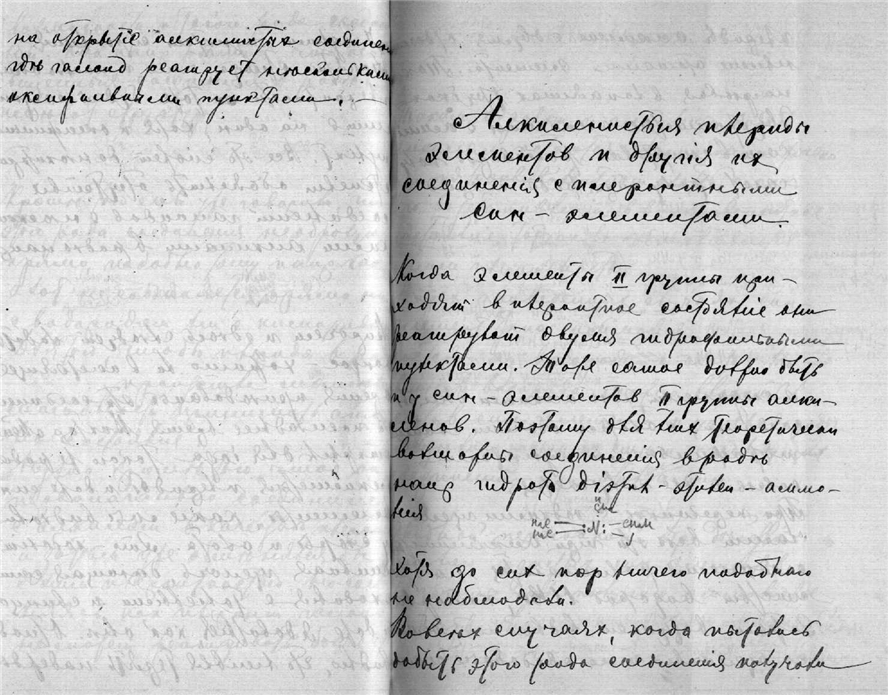 на открытіе алкилистых соединен
гдѣ галоид реагирует несколькими
октрольными пунктами.
Алкиленистыя періоды
элементов и другія их
соединенія с
син-элементами.
Когда элементы II группы при-
ходят в состояніе они
реагируют двумя гидрофильными
пунктами. Тоже самое должно быть
и у син-элементов II группы алки-
ленов. Поэтому для них теоретически
возможны соединенія вродѣ
гидрата - этилен - аммо-
нія
N
Хотя до сих пор ничего подобнаго
не наблюдали.
Во всех случаях, когда пытались
добыть этого рода соединенія получали